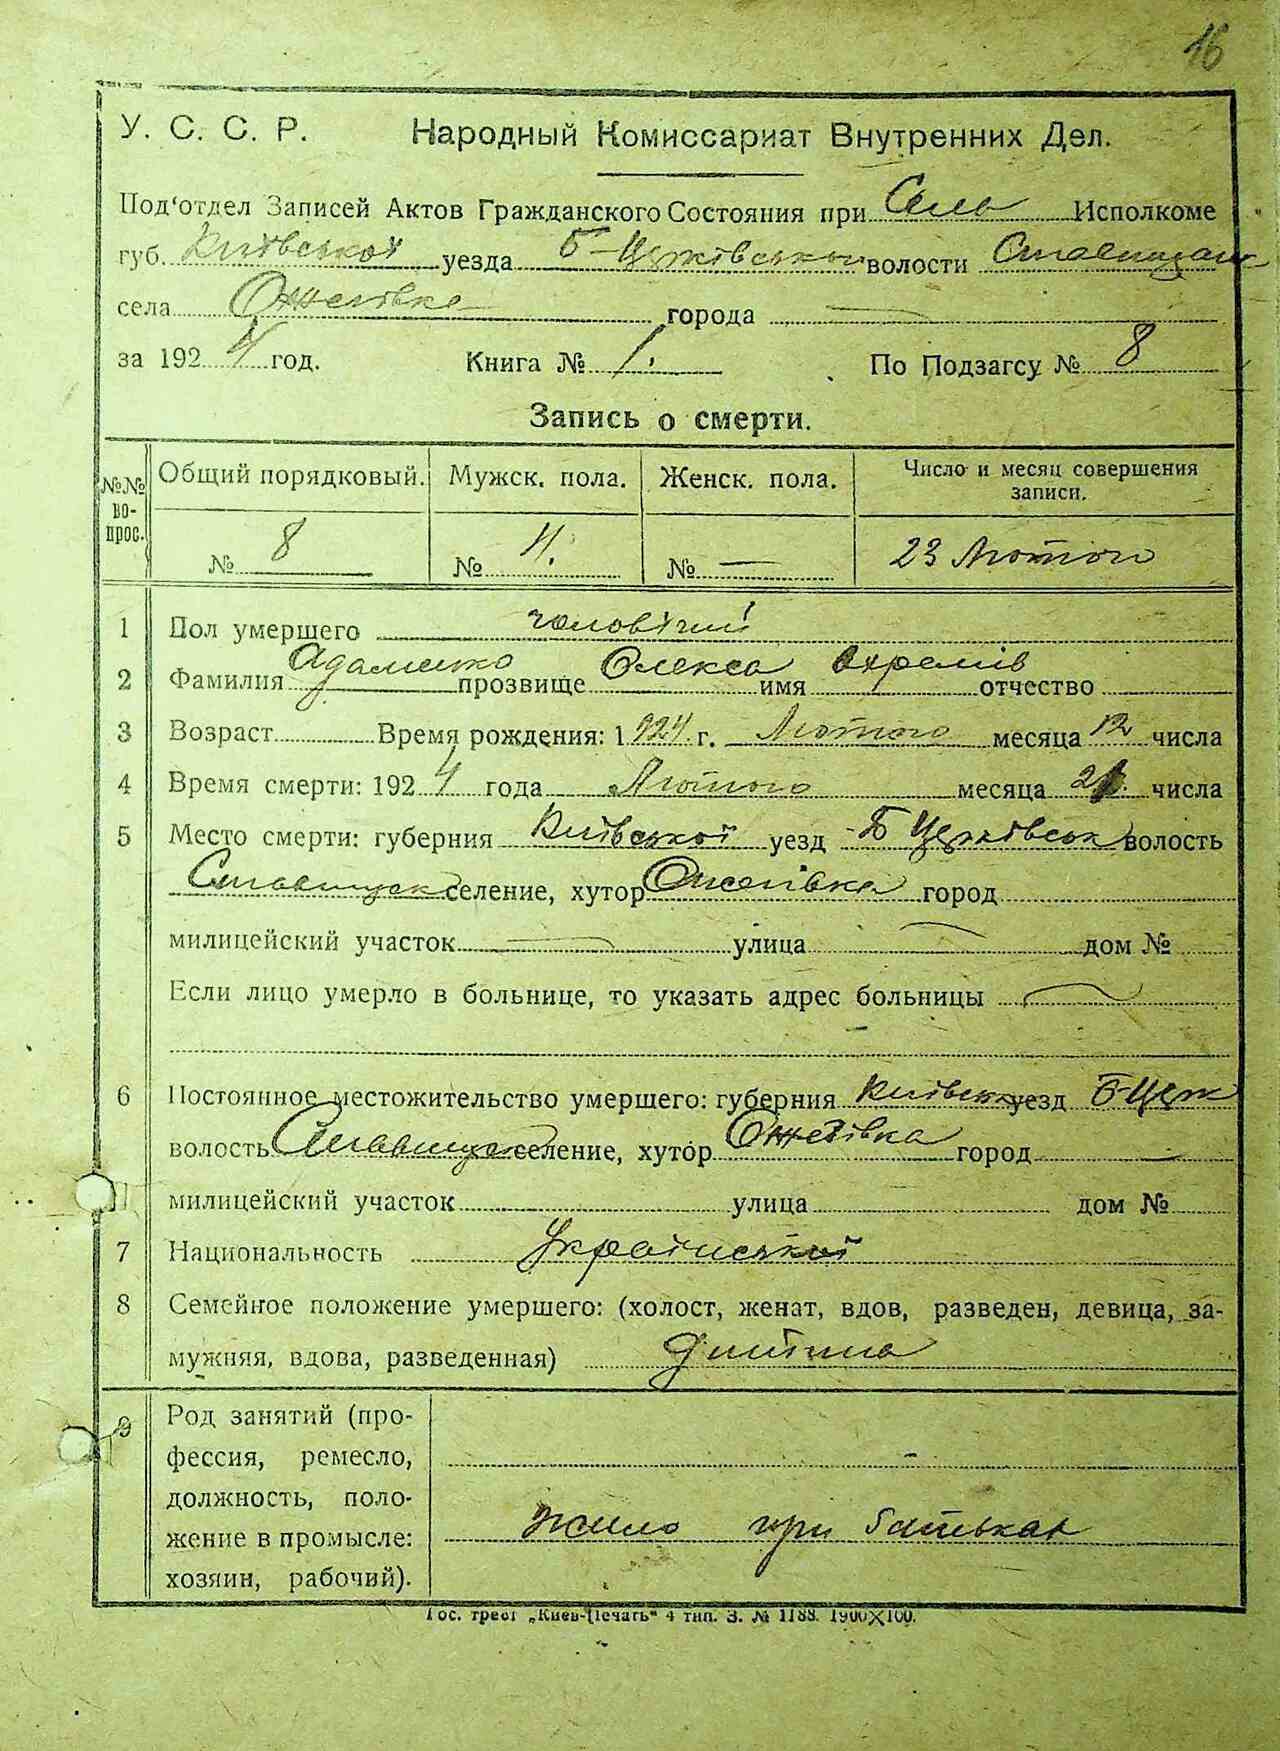 16
У. С. С. Р. Народный Комиссариат Внутренних Дел.
Под'отдел Записей Актов Гражданского Состояния при Сель Исполкоме
губ. Київської уезда Б-Церківської волости
села Ожегівка города —
за 1924 год. Книга № 1. По Подзагсу № 8
Запись о смерти.
№№ вопрос. Общий порядковый. Мужск. пола. Женск. пола. Число и месяц совершения записи.
№ 8 № 4. № — 23 Лютого
1 Пол умершего чоловічий
2 Фамилия Адаменко прозвище Олекса имя Охремів отчество
3 Возраст Время рождения: 1924 г. Лютого месяца 12 числа
4 Время смерти: 1924 года Лютого месяца числа
5 Место смерти: губерния Київської уезд Б Церківськ волость
Ставищск селение, хутор Ожегівка город
милицейский участок — улица — дом №
Если лицо умерло в больнице, то указать адрес больницы —
6 Постоянное местожительство умершего: губерния Київськ уезд Б-Церк
волость Ставищск селение, хутор Ожегівка город —
милицейский участок улица дом №
7 Национальность Української
8 Семейное положение умершего: (холост, женат, вдов, разведен, девица, за-
мужняя, вдова, разведенная) дитина
9 Род занятий (про-
фессия, ремесло,
должность, поло-
жение в промысле: жило при батьках
хозяин, рабочий).
Гос. трест „Киев-Печать" 4 тип. З. № 1188. 1900X100.